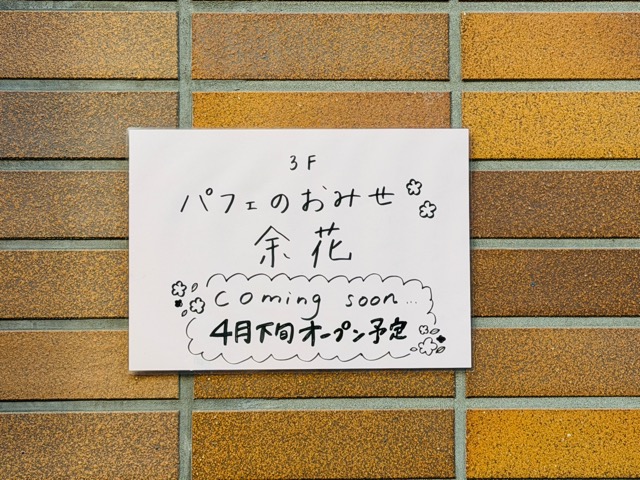 3F
パフェのおみせ
余花
coming soon...
4月下旬オープン予定